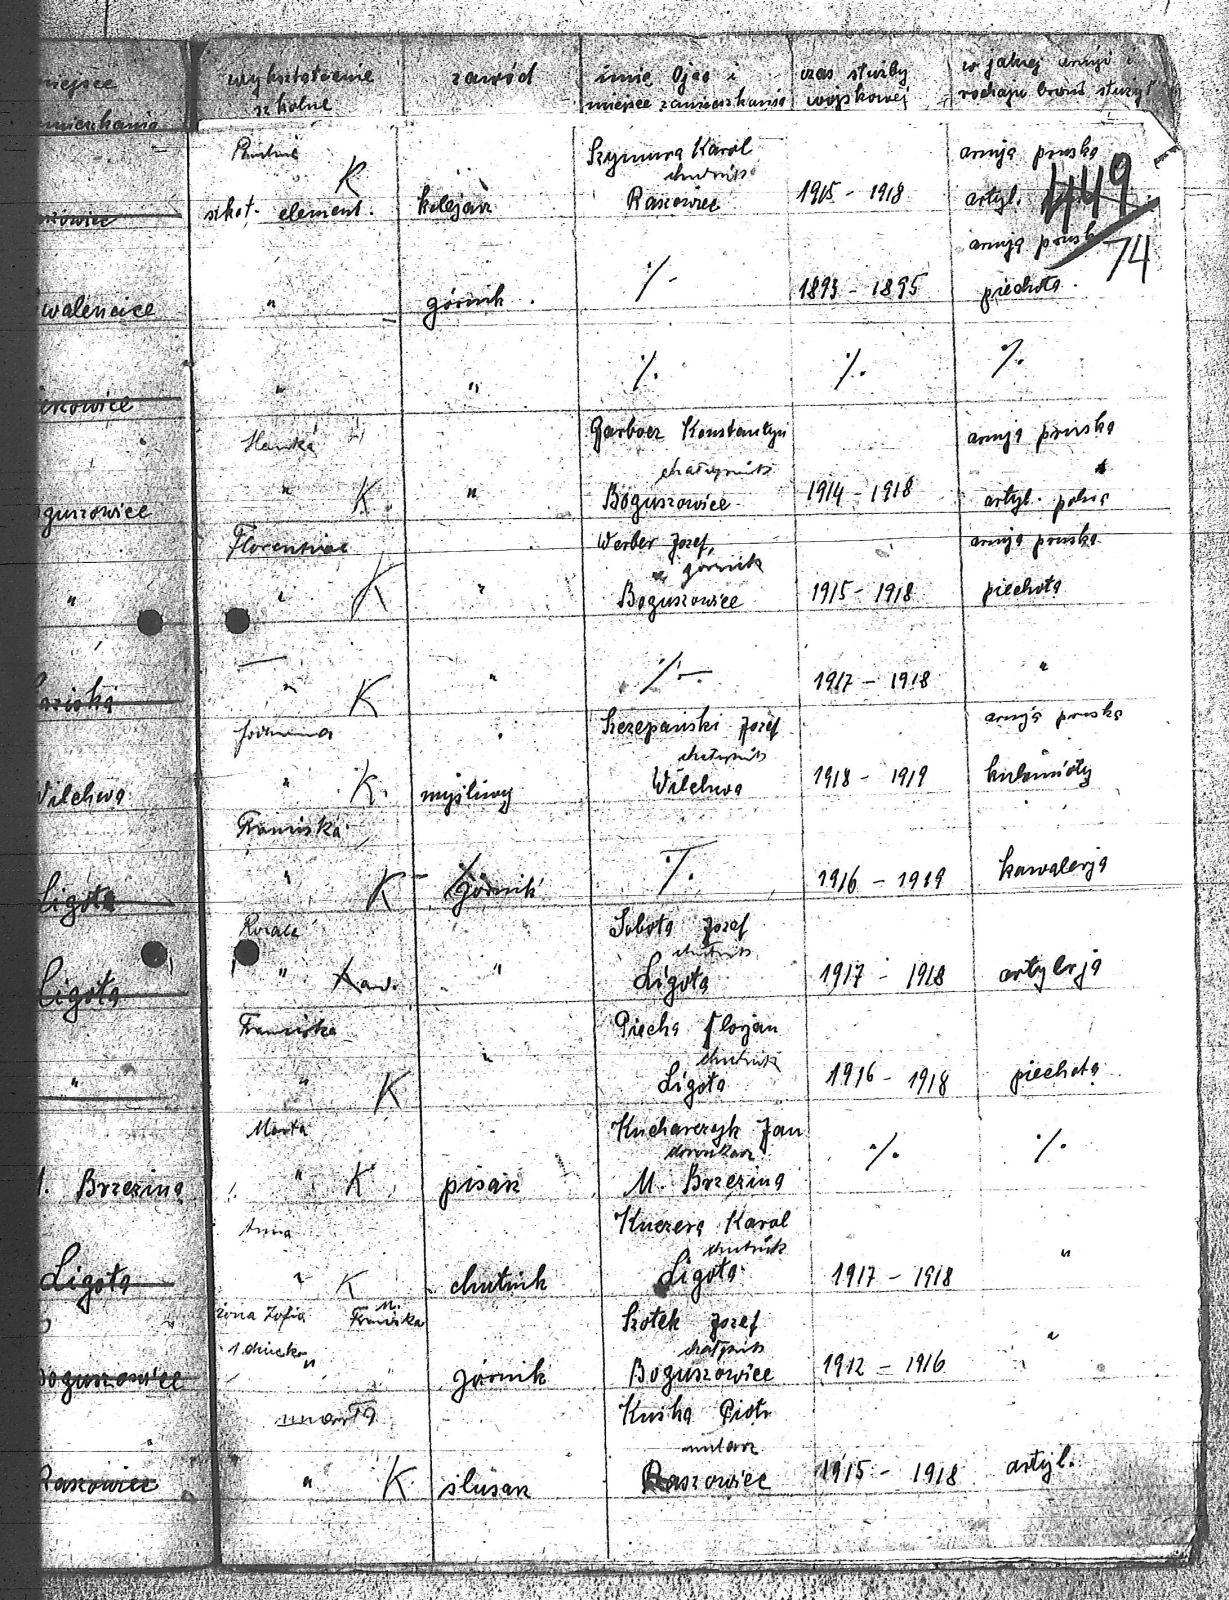 miejsce wykształcenie zawód imię Ojca i czas służby w jakiej armji i
zamieszkania szkolne miejsce zamieszkania wojskowej rodzaju broni służył
Szymura Karol armja pruska
chałupnik
szkoł. element. K kolejarz Raszowiec 1915 - 1918 artyl. 449
armja prusk 74
walencice " górnik . ·/- 1893 - 1895 piechota.
" " ·/. ·/. ·/.
Hanka Garbocz Konstantyn armja pruska
chałupnik
guszowice " K " Boguszowice 1914 - 1918 artyl. polna
Florentine Werber Jozef, armja pruska
górnik
" " K " Boguszowice 1915 - 1918 piechota
" K " ·/- 1917 - 1918 "
Szczepański Jozef armja pruska
chałupnik
Wilchwa " K. myśliwy Wilchwa 1918 - 1919 kulomioty
Franciska
Ligota " K górnik ·/. 1916 - 1919 kawalerja
Sobota Jozef
chałupnik
Ligota " Kaw. " Ligota 1917 - 1918 artylrja
Franciska Piecha Florjan
chałupnik
" " K " Ligota 1916 - 1918 piechota
Marta Kucharczyk Jan
M. Brzezina " K pisarz M. Brzezina ·/. ·/.
Anna Kuczera Karol
chałupnik
Ligota " K chałupnik Ligota 1917 - 1918 "
żona Zofia Franciska Szołek Jozef
1 dziecko chałupnik
Boguszowice " górnik Boguszowice 1912 - 1916 "
Kuśka Piotr
Raszowiec " K ślusarz Raszowiec 1915 - 1918 artyl.